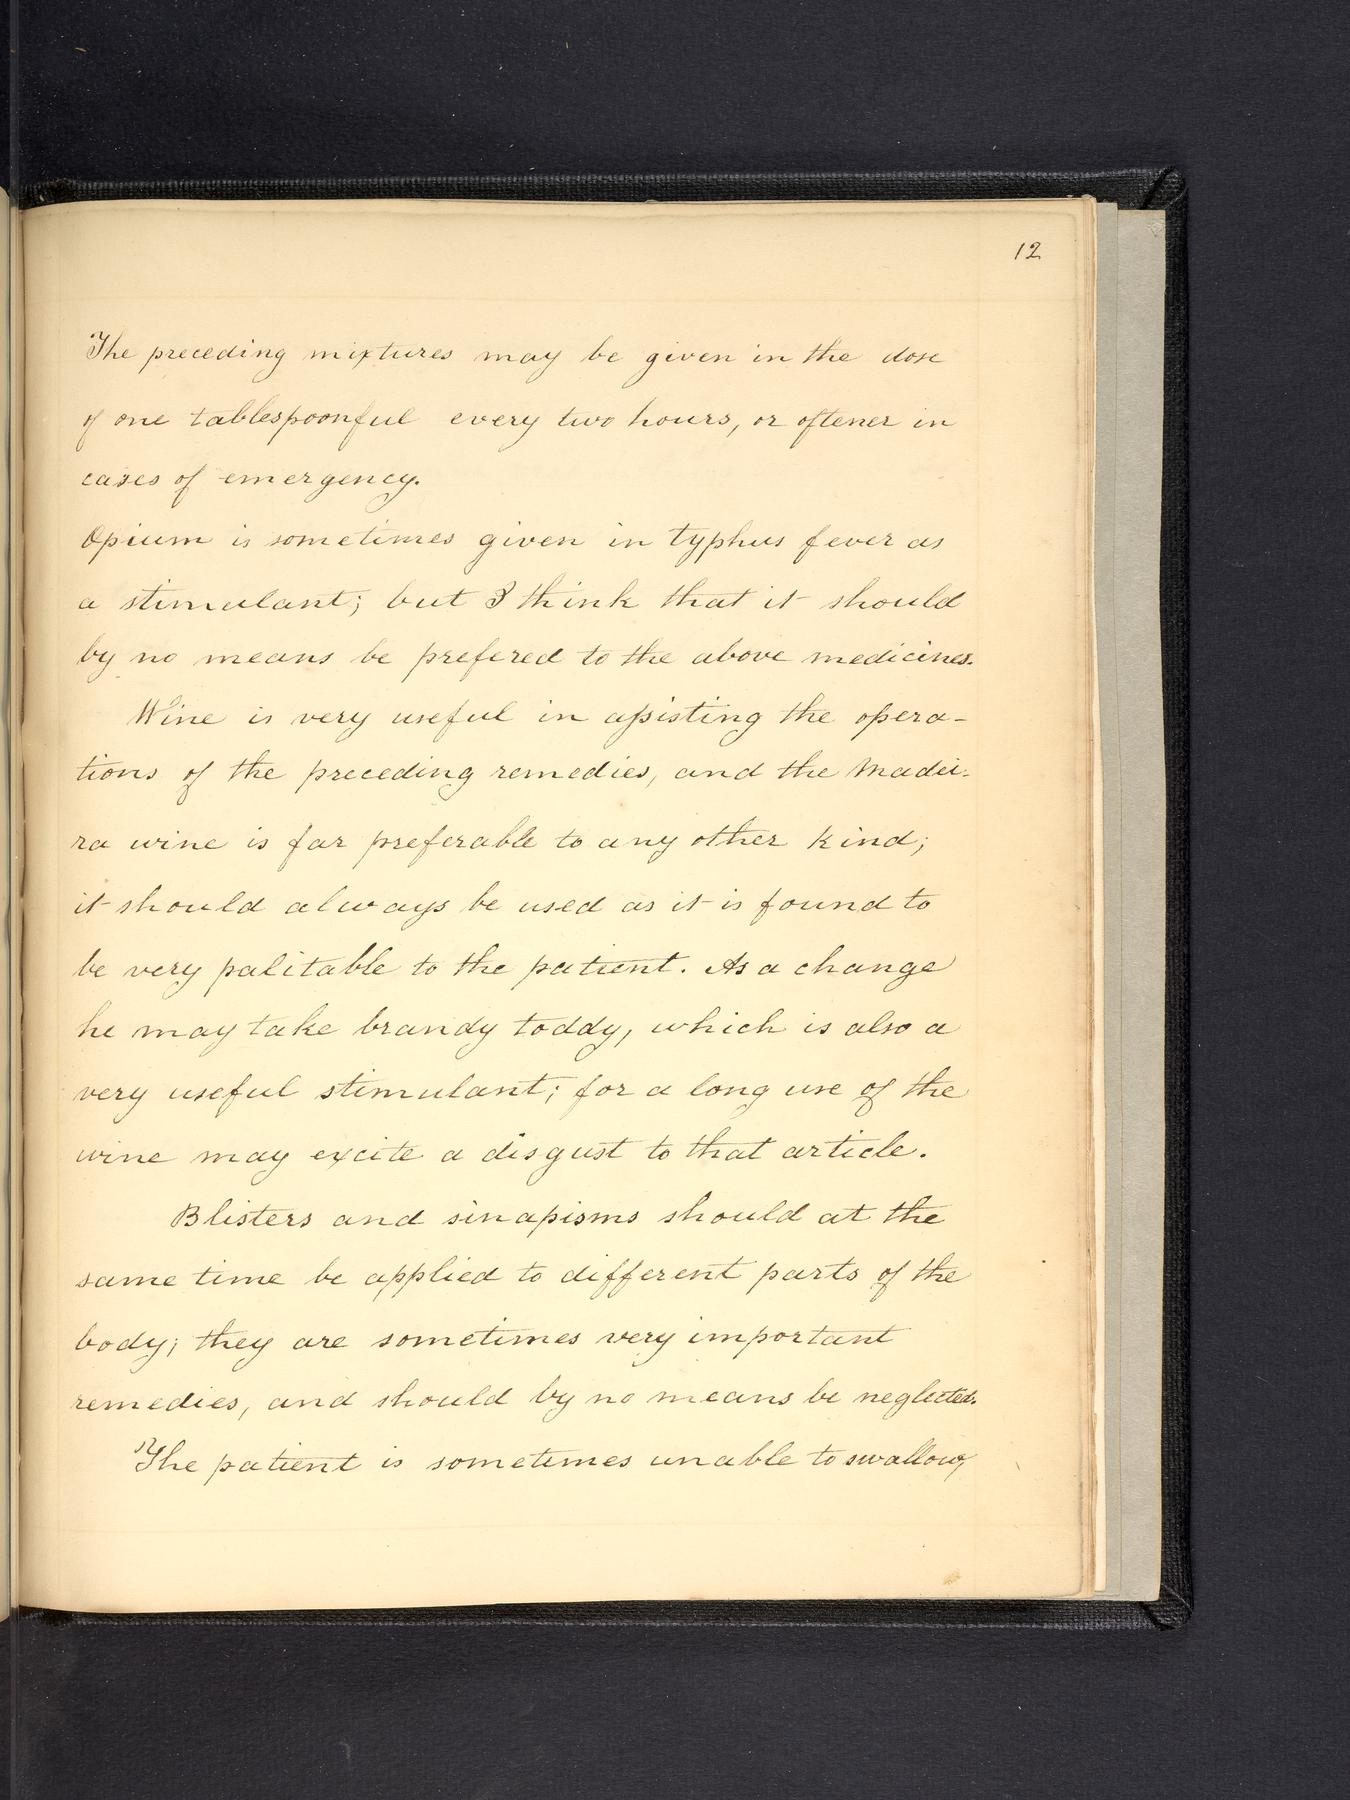 12
The preceding mixtures may be given in the dose
of one tablespoonful every two hours, or oftener in
cases of emergency.
Opium is sometimes given in typhus fever as
a stimulant; but I think that it should
by no means be prefered to the above medicines.
Wine is very useful in assisting the opera-
tions of the preceding remedies, and the Madei-
ra wine is far preferable to any other kind;
it should always be used as it is found to
be very palitable to the patient. As a change
he may take brandy toddy, which is also a
very useful stimulant; for a long use of the
wine may excite a disgust to that article.
Blisters and sinapisms should at the
same time be applied to different parts of the
body; they are sometimes very important
remedies, and should by no means be neglected.
The patient is sometimes unable to swallow,